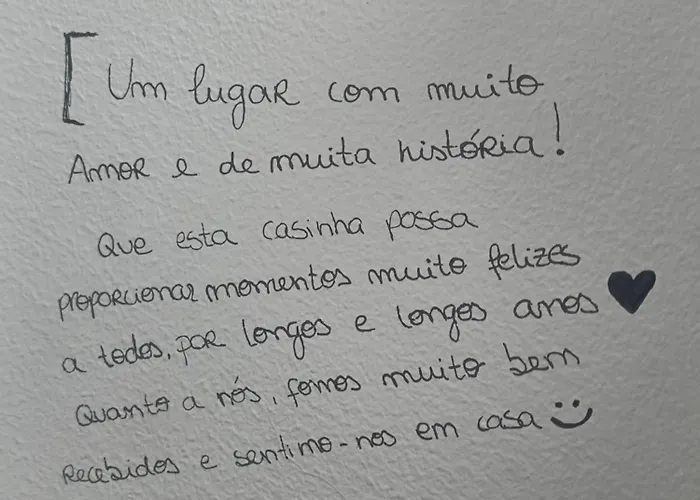 [ Um lugar com muito
Amor e de muita história!
Que esta casinha possa
proporcionar momentos muito felizes
a todos, por longos e longos anos ♥
Quanto a nós, fomos muito bem
recebidos e sentimo-nos em casa :)